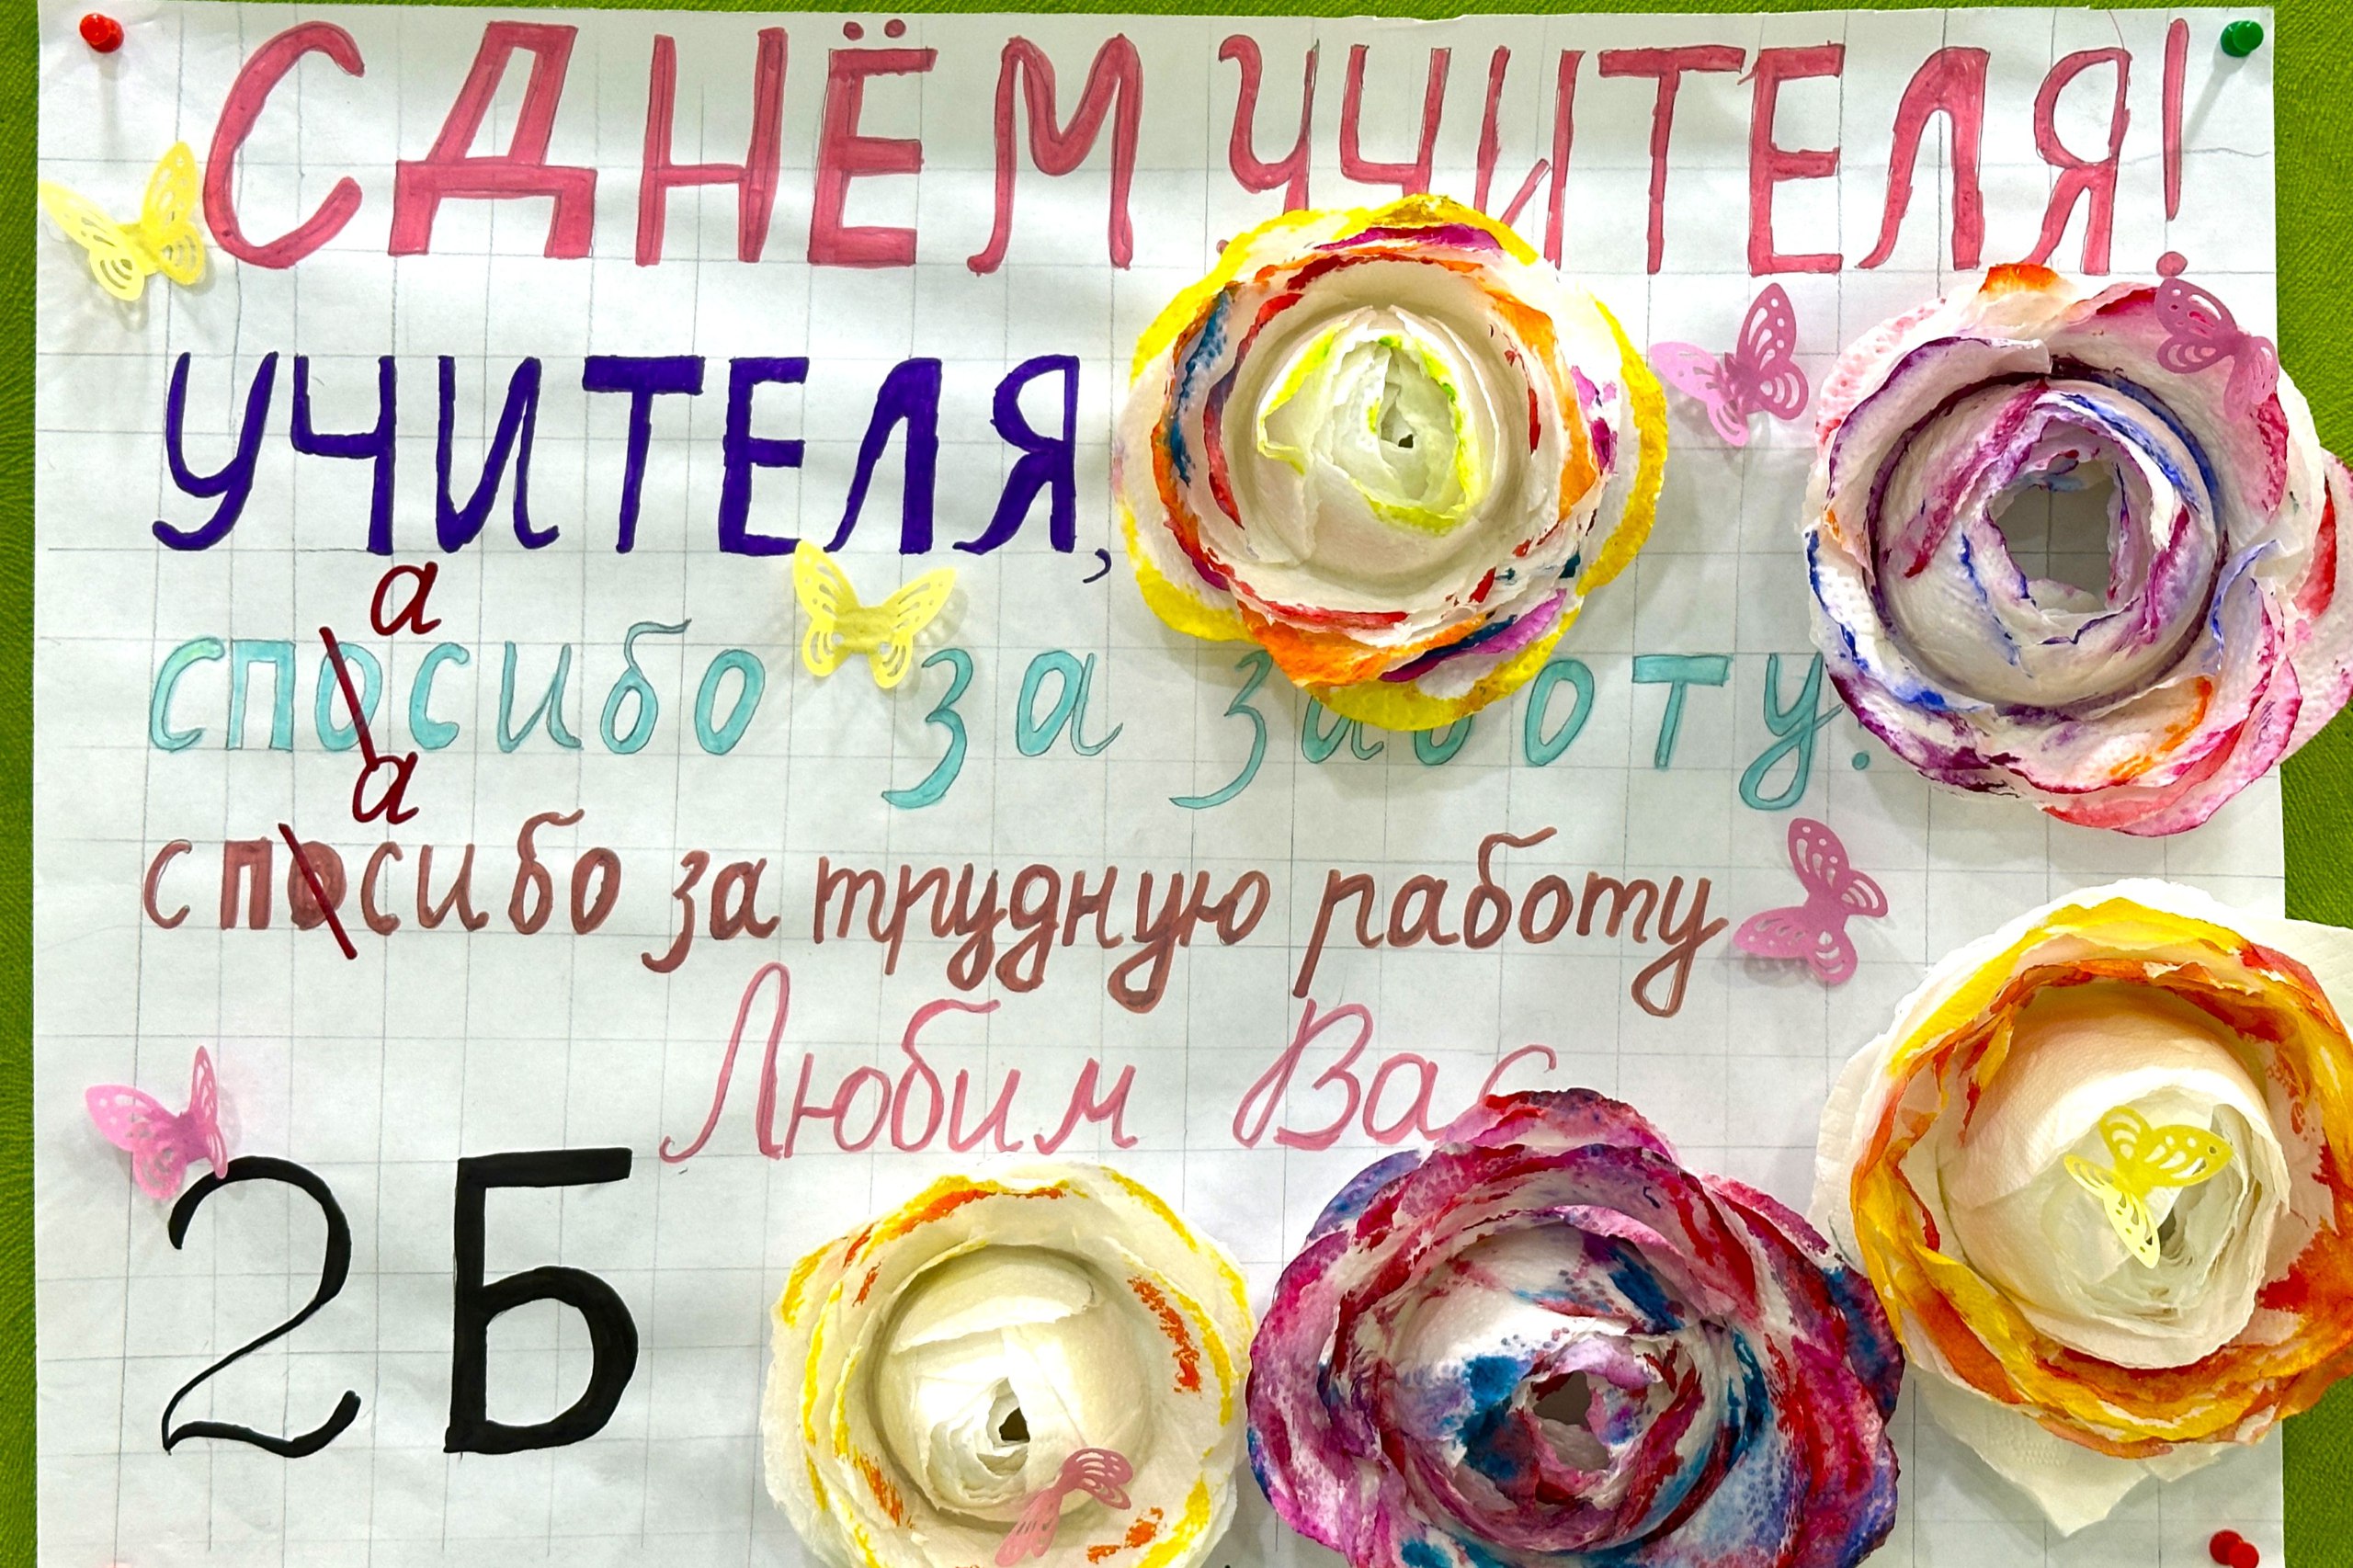 С ДНЁМ УЧИТЕЛЯ!
УЧИТЕЛЯ,
спасибо за заботу!
спасибо за трудную работу
Любим Вас
2Б